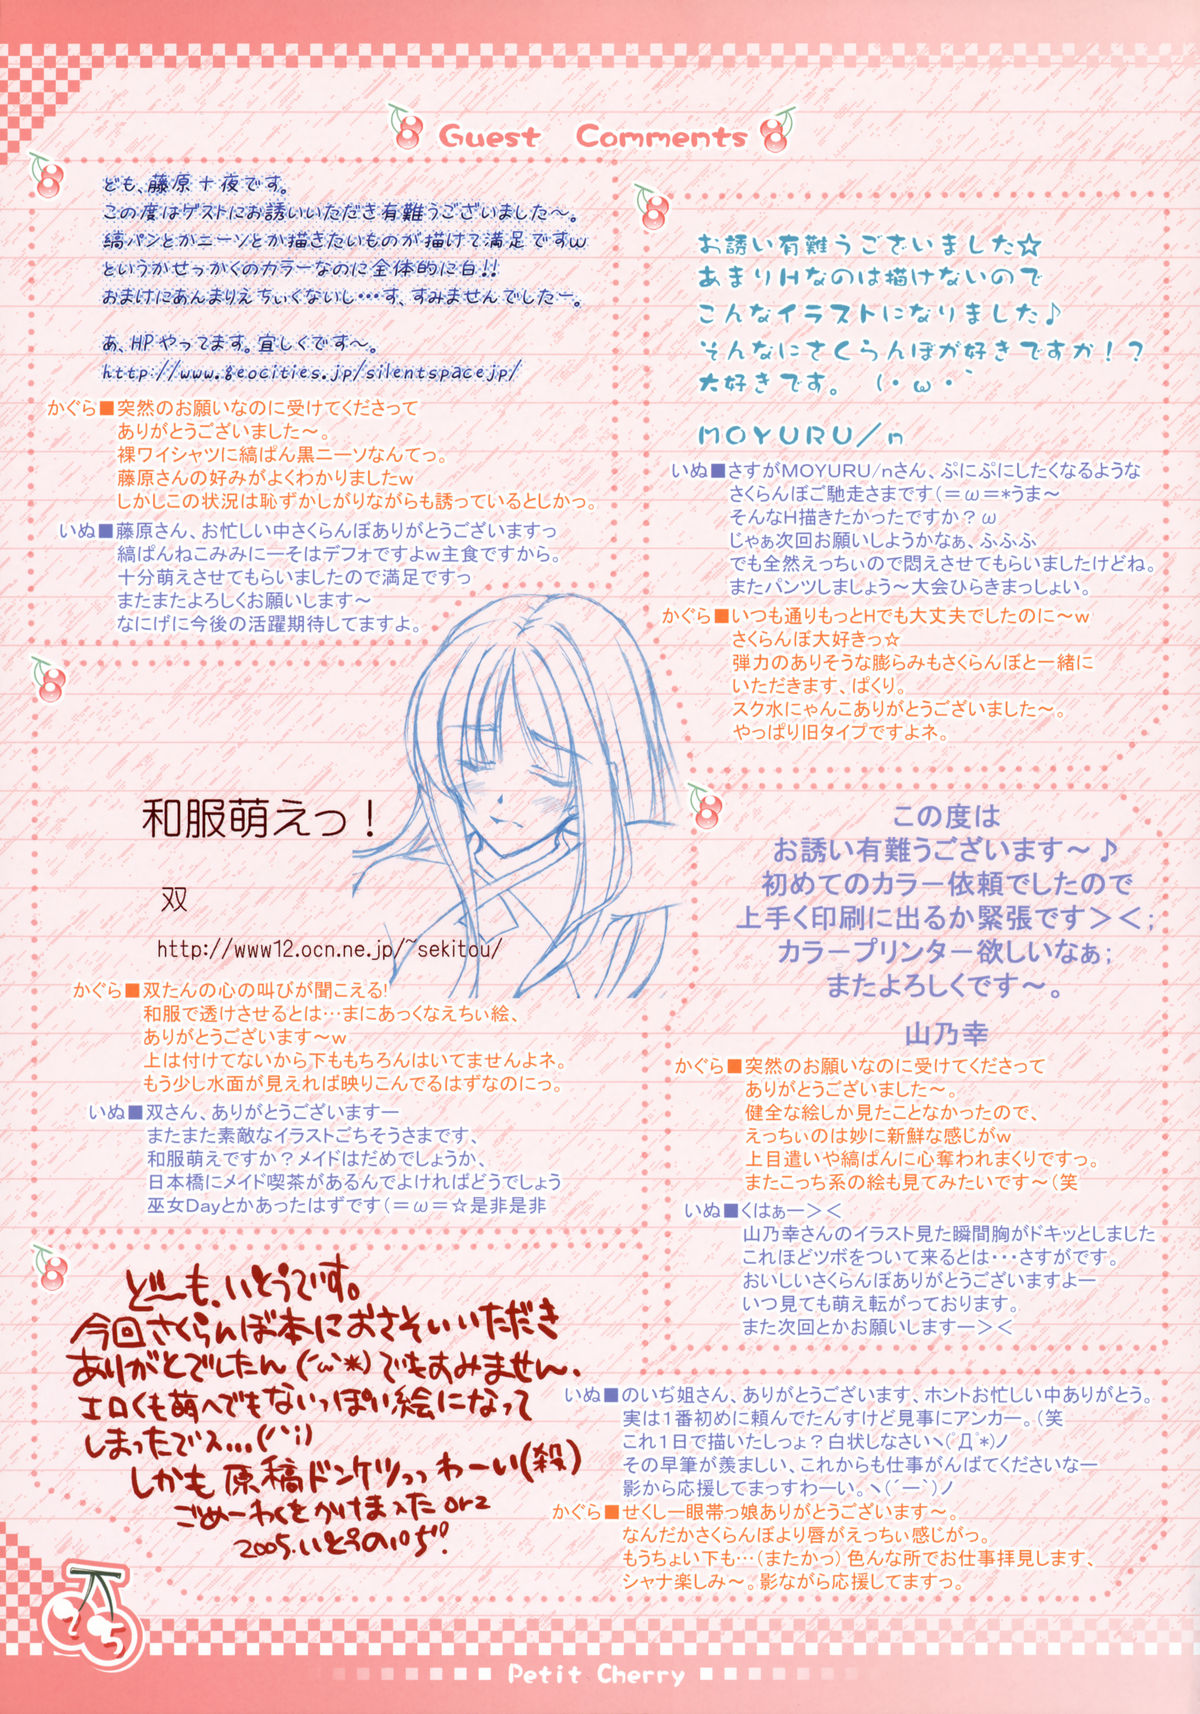 Guest Comments
ども、藤原十夜です。
この度はゲストにお誘いいただき有難うございました～。
縞パンとかニーソとか描きたいものが描けて満足ですw
というかせっかくのカラーなのに全体的に白!!
おまけにあんまりえちぃくないし…す、すみませんでしたー。
あ、HPやってます。宜しくです～。
http://www.geocities.jp/silentspacejp/
かぐら■突然のお願いなのに受けてくださって
ありがとうございました～。
裸ワイシャツに縞ぱん黒ニーソなんてっ。
藤原さんの好みがよくわかりましたw
しかしこの状況は恥ずかしがりながらも誘っているとしかっ。
いぬ■藤原さん、お忙しい中さくらんぼありがとうございますっ
縞ぱんねこみみにーそはデフォですよw主食ですから。
十分萌えさせてもらいましたので満足ですっ
またまたよろしくお願いします～
なにげに今後の活躍期待してますよ。
お誘い有難うございました☆
あまりHなのは描けないので
こんなイラストになりました♪
そんなにさくらんぼが好きですか！？
大好きです。 (・ω・｀
MOYURU/n
いぬ■さすがMOYURU/nさん、ぷにぷにしたくなるような
さくらんぼご馳走さまです(=ω=*うま～
そんなH描きたかったですか？ω
じゃぁ次回お願いしようかなぁ、ふふふ
でも全然えっちぃので悶えさせてもらいましたけどね。
またパンツしましょう～大会ひらきまっしょい。
かぐら■いつも通りもっとHでも大丈夫でしたのに～w
さくらんぼ大好きっ☆
弾力のありそうな膨らみもさくらんぼと一緒に
いただきます、ぱくり。
スク水にゃんこありがとうございました～。
やっぱり旧タイプですよネ。
和服萌えっ！
双
http://www12.ocn.ne.jp/~sekitou/
かぐら■双たんの心の叫びが聞こえる!
和服で透けさせるとは…まにあっくなえちぃ絵、
ありがとうございます～w
上は付けてないから下ももちろんはいてませんよネ。
もう少し水面が見えれば映りこんでるはずなのにっ。
いぬ■双さん、ありがとうございますー
またまた素敵なイラストごちそうさまです、
和服萌えですか？メイドはだめでしょうか、
日本橋にメイド喫茶があるんでよければどうでしょう
巫女Dayとかあったはずです(=ω=☆是非是非
この度は
お誘い有難うございます～♪
初めてのカラー依頼でしたので
上手く印刷に出るか緊張です＞＜;
カラープリンター欲しいなぁ;
またよろしくです～。
山乃幸
かぐら■突然のお願いなのに受けてくださって
ありがとうございました～。
健全な絵しか見たことなかったので、
えっちぃのは妙に新鮮な感じがw
上目遣いや縞ぱんに心奪われまくりですっ。
またこっち系の絵も見てみたいです～(笑
いぬ■くはぁー＞＜
山乃幸さんのイラスト見た瞬間胸がドキッとしました
これほどツボをついて来るとは・・・さすがです。
おいしいさくらんぼありがとうございますよー
いつ見ても萌え転がっております。
また次回とかお願いしますー＞＜
どーも、いとうです。
今回さくらんぼ本におさそいいただき
ありがとでしたん(´ω`*)でもすみません、
エロくも萌へでもないっぽい絵になって
しまったでス...(^^;)
しかも原稿ドンケツっっわーい(殺)
ごめーわくをかけまスた orz
2005.いとうのいぢ!
いぬ■のいぢ姐さん、ありがとうございます、ホントお忙しい中ありがとう。
実は１番初めに頼んでたんすけど見事にアンカー。(笑
これ１日で描いたしっょ？白状しなさいヽ(ﾟДﾟ*)ノ
その早筆が羨ましい、これからも仕事がんばてくださいなー
影から応援してまっすわーい。ヽ(´ー｀)ノ
かぐら■せくしー眼帯っ娘ありがとうございます～。
なんだかさくらんぼより唇がえっちぃ感じがっ。
もうちょい下も…(またかっ) 色んな所でお仕事拝見します、
シャナ楽しみ～。影ながら応援してますっ。
Petit Cherry